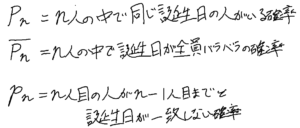 Pn = n人の中で同じ誕生日の人がいる確率
P̅n̅ = n人の中で誕生日が全員バラバラの確率
pn = n人目の人がn-1人目までと
誕生日が一致しない確率